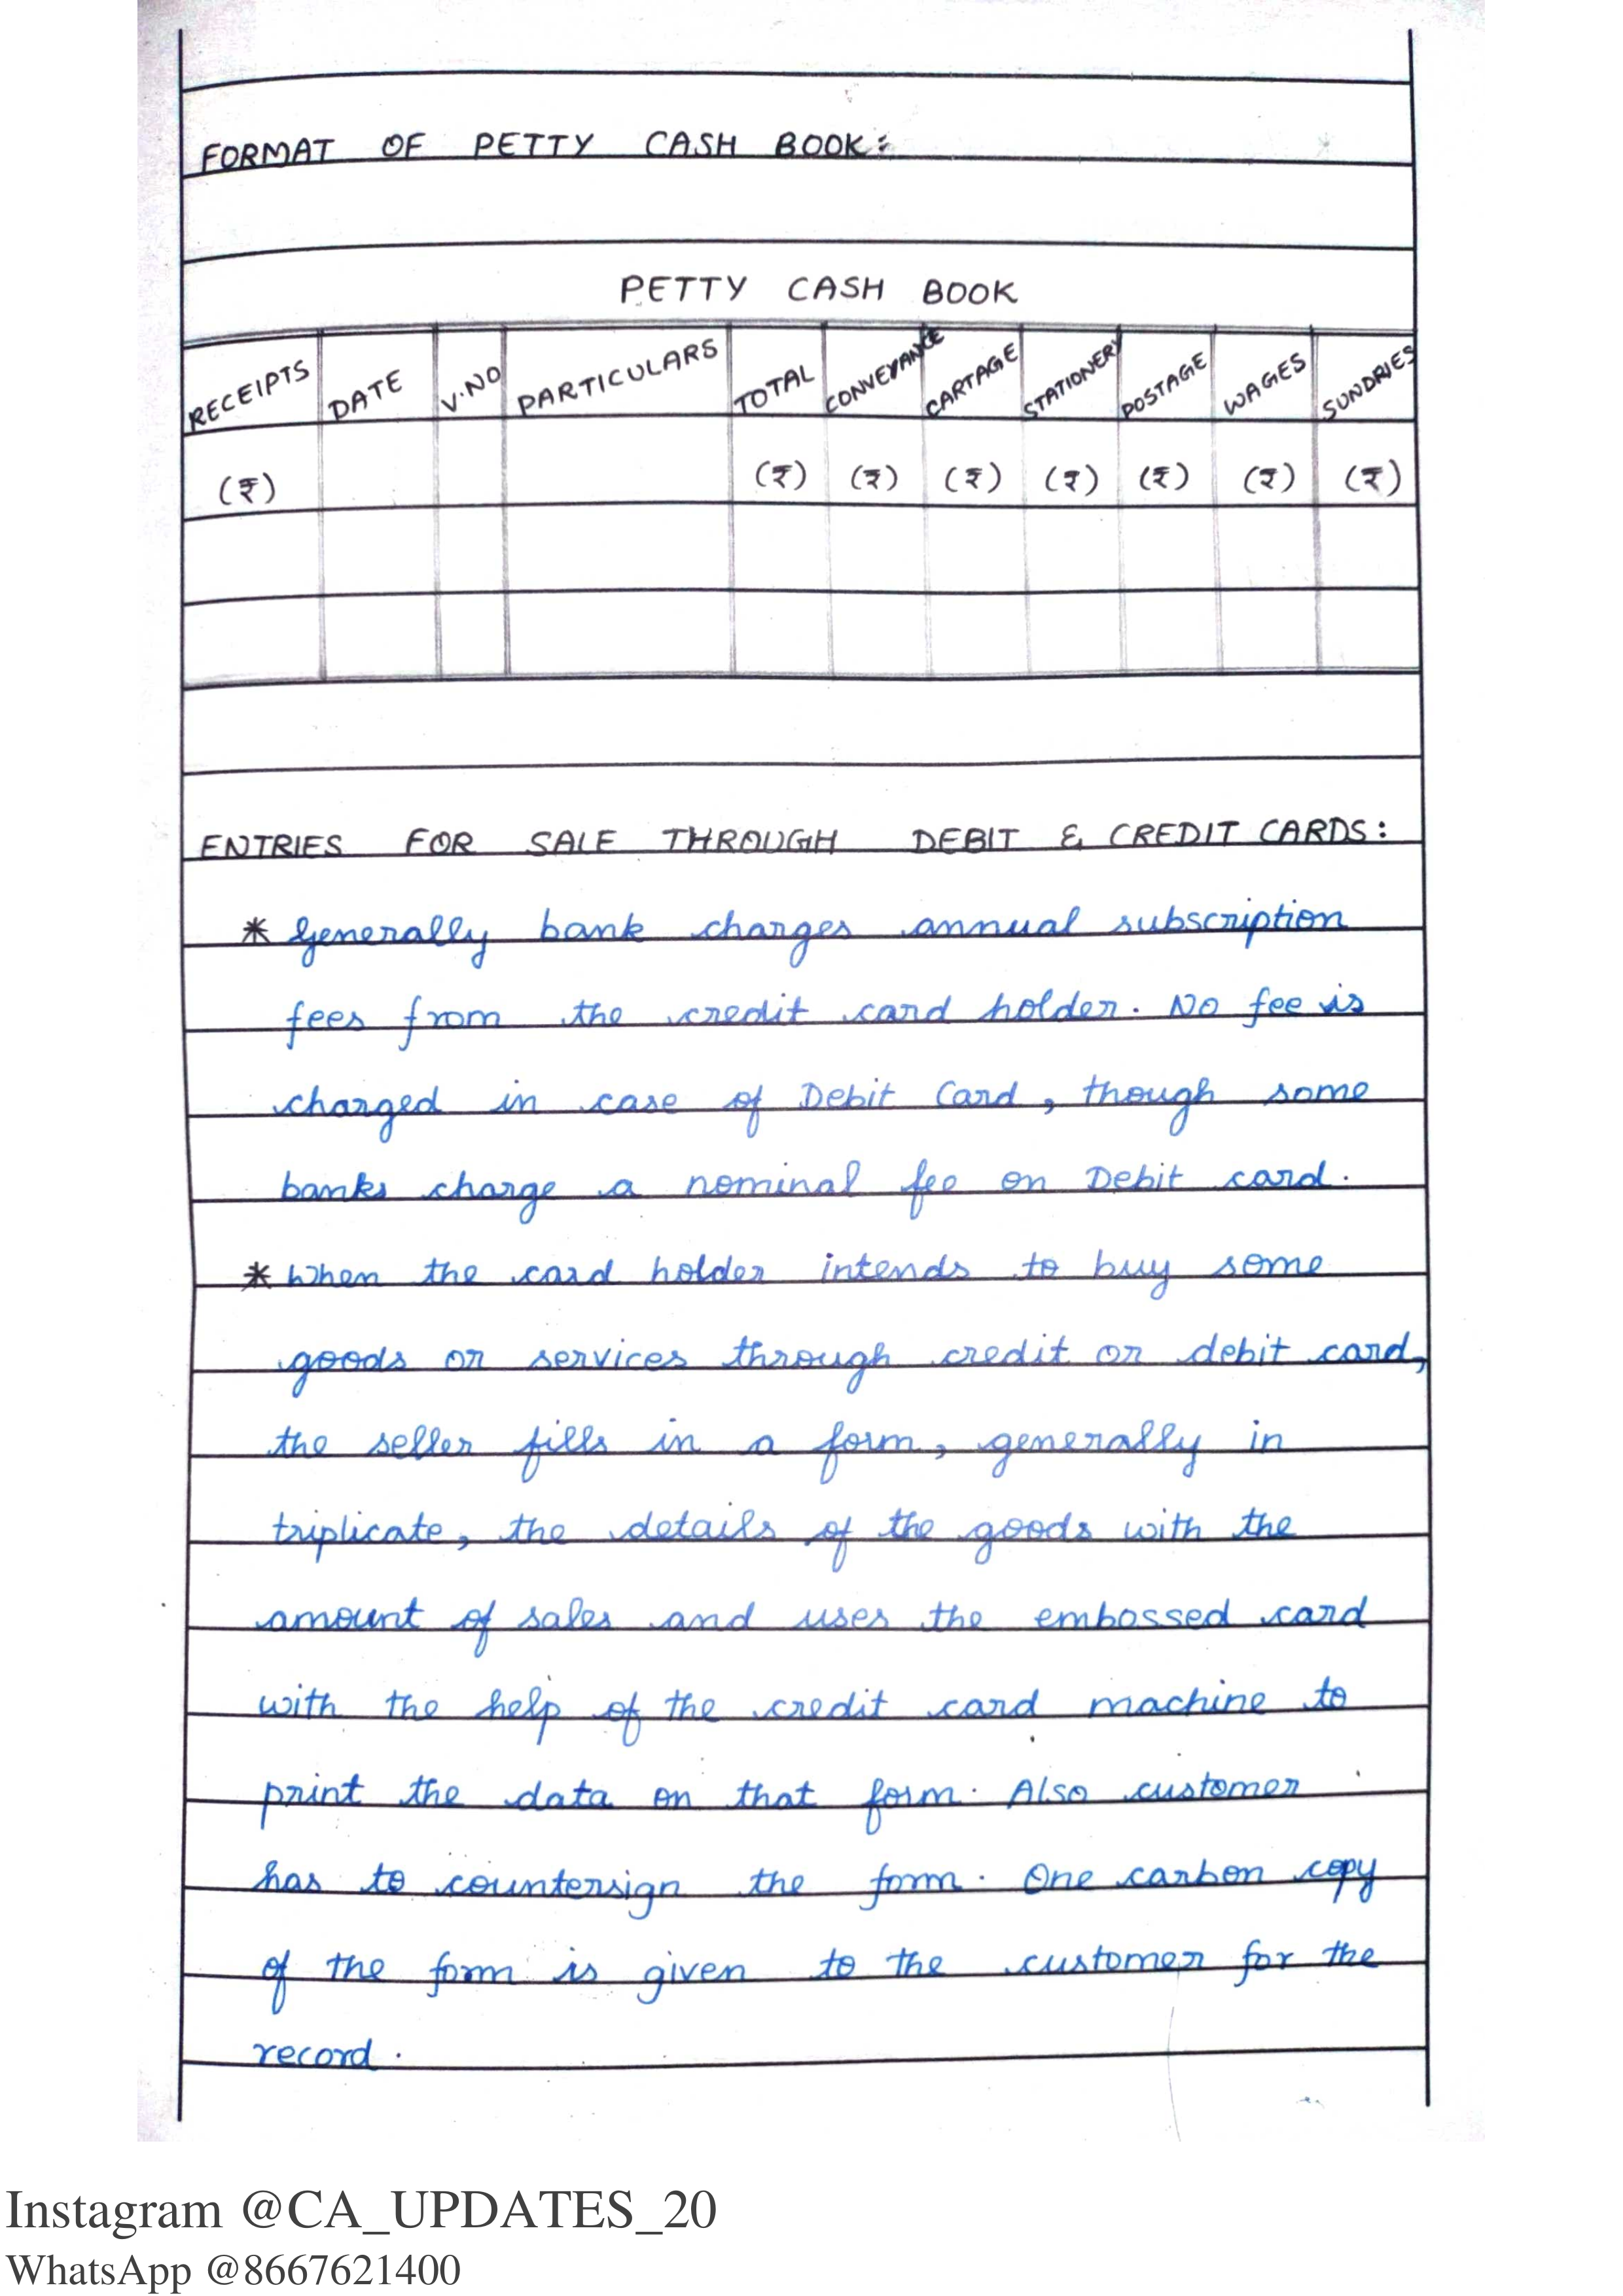 FORMAT OF PETTY CASH BOOK:
PETTY CASH BOOK
RECEIPTS DATE V.NO PARTICULARS TOTAL CONVEYANCE CARTAGE STATIONERY POSTAGE WAGES SUNDRIES
(₹) (₹) (₹) (₹) (₹) (₹) (₹) (₹)
ENTRIES FOR SALE THROUGH DEBIT & CREDIT CARDS:
* Generally bank charges annual subscription
fees from the credit card holder. No fee is
charged in case of Debit Card, though some
banks charge a nominal fee on Debit card.
* When the card holder intends to buy some
goods or services through credit or debit card,
the seller fills in a form, generally in
triplicate, the details of the goods with the
amount of sales and uses the embossed card
with the help of the credit card machine to
print the data on that form. Also customer
has to countersign the form. One carbon copy
of the form is given to the customer for the
record.
Instagram @CA_UPDATES_20
WhatsApp @8667621400